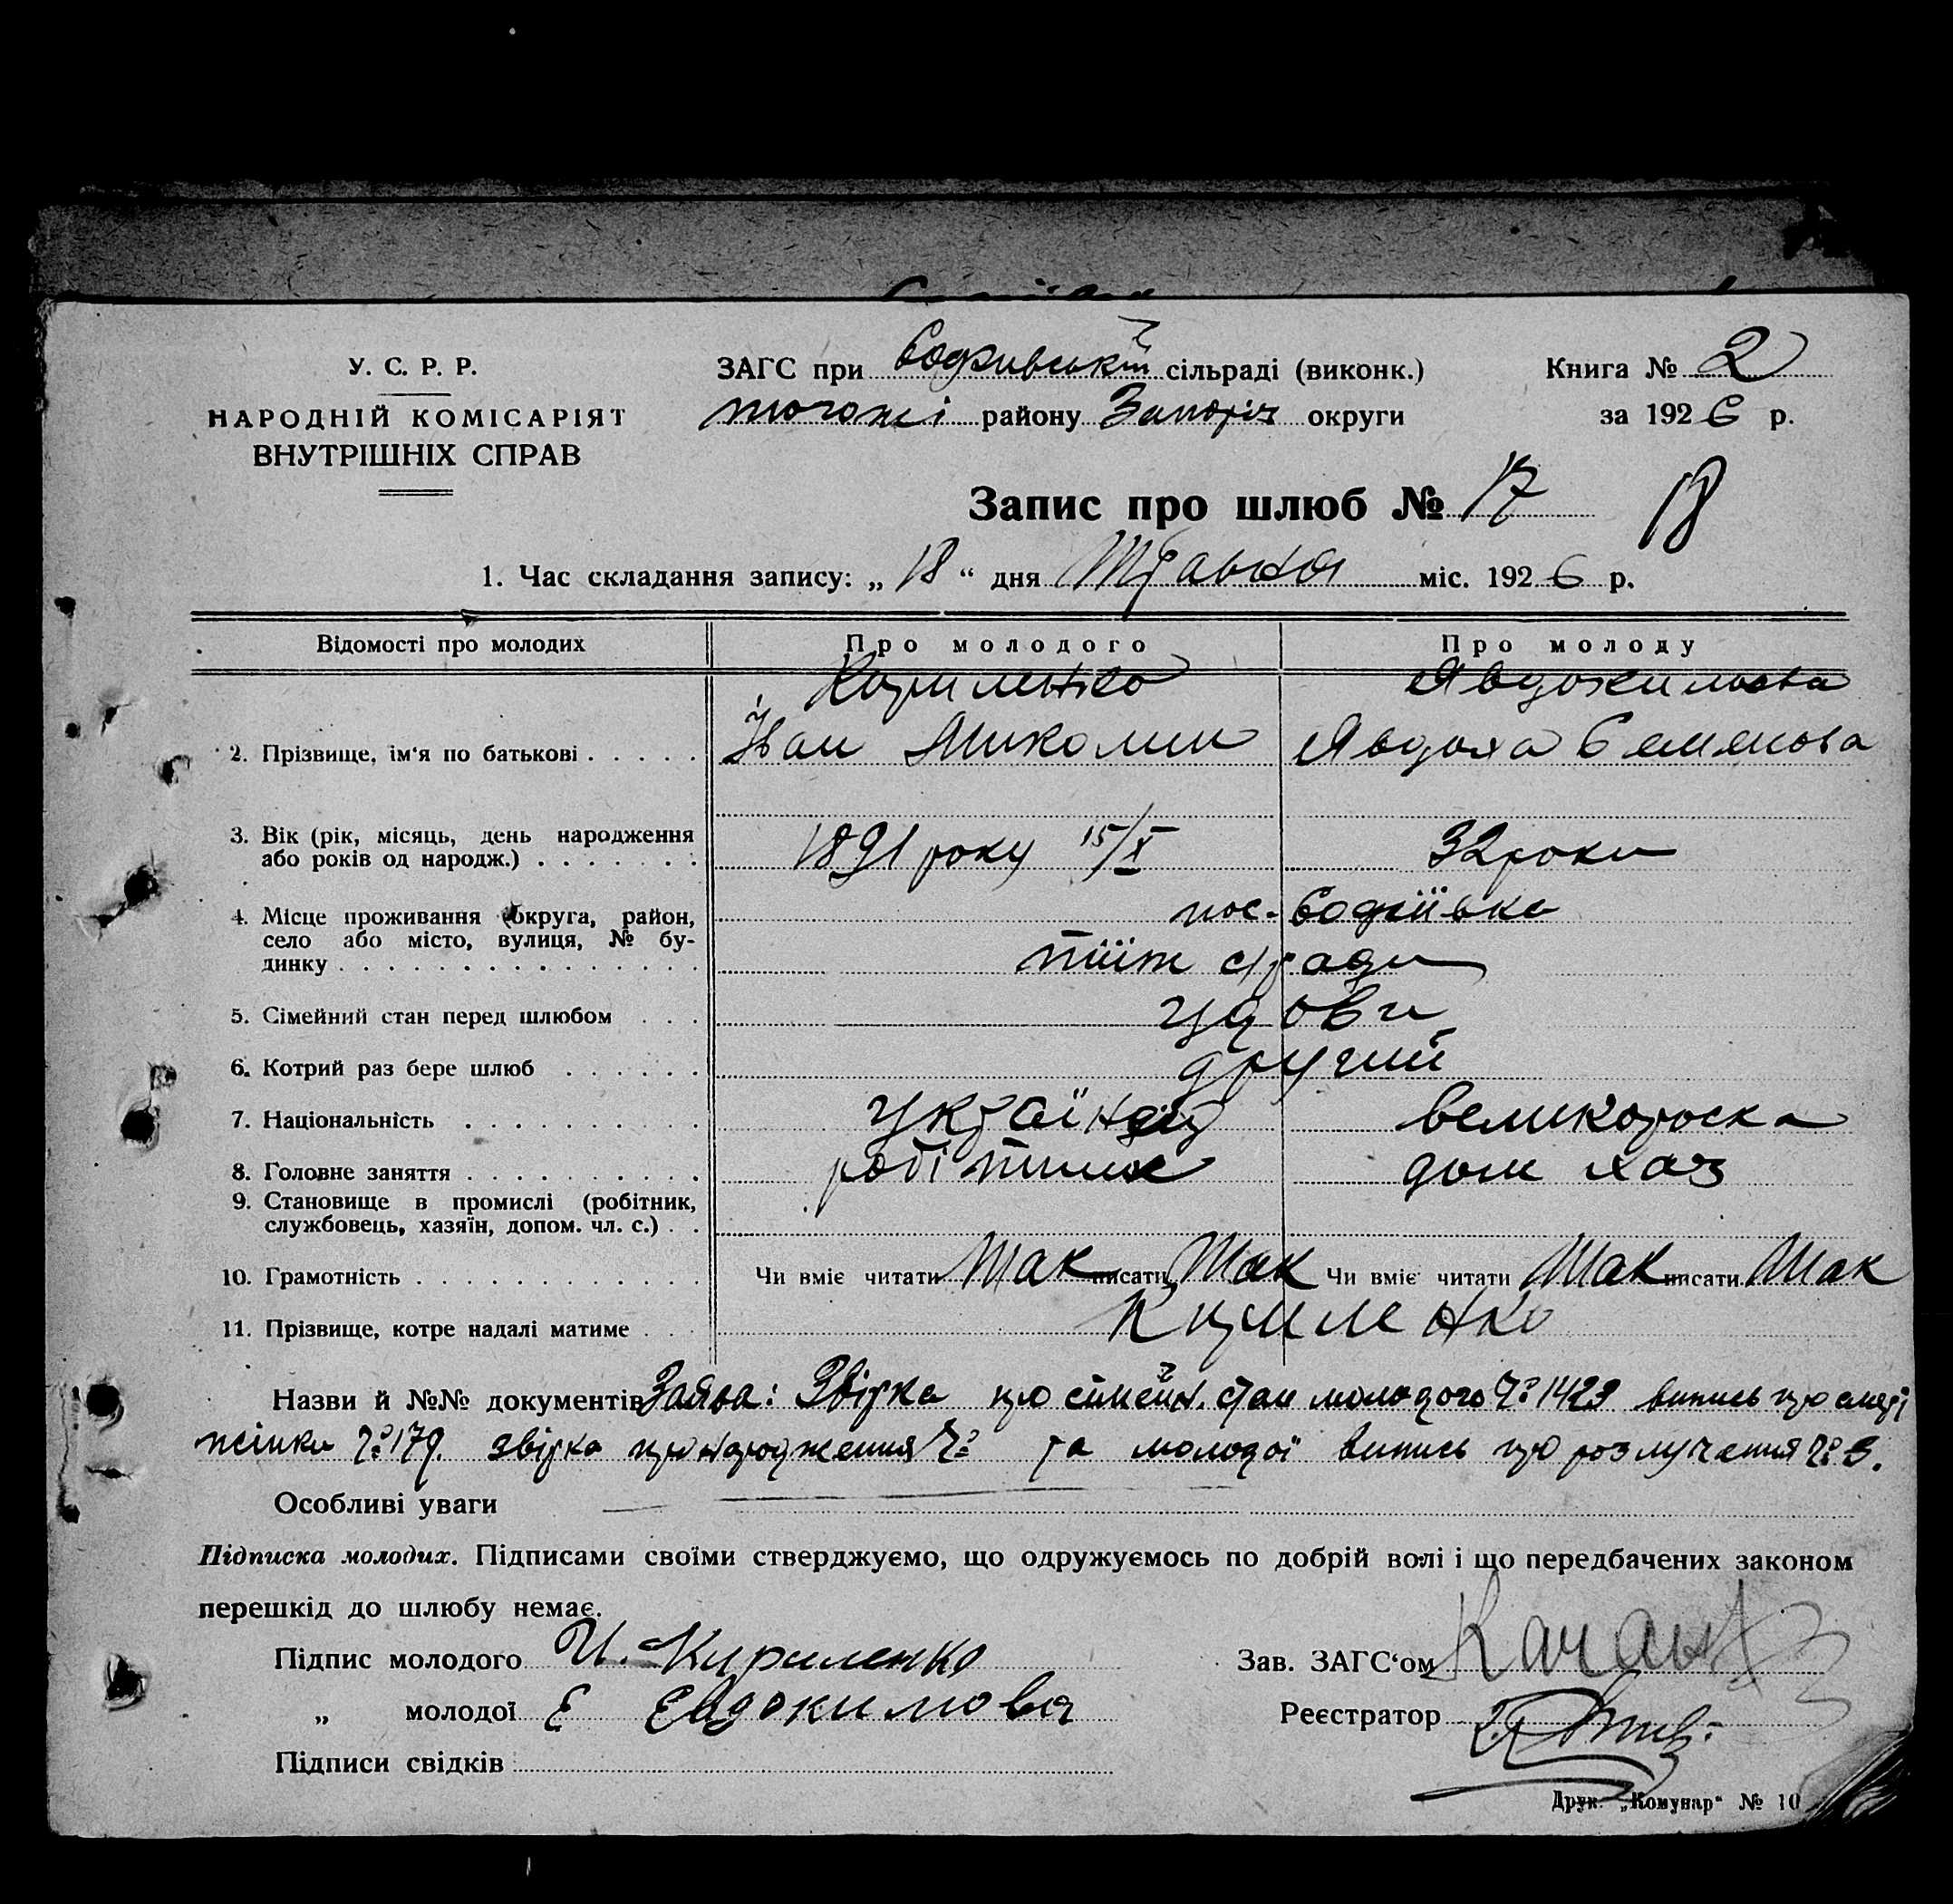 У. С. Р. Р.
НАРОДНІЙ КОМІСАРІЯТ
ВНУТРІШНІХ СПРАВ
ЗАГС при сільраді (виконк.)
тогожі району Запоріз округи
Книга № 2
за 1926 р.
Запис про шлюб № 17 18
1. Час складання запису: „ 18 “ дня Травня міс. 1926 р.
Відомості про молодих Про молодого Про молоду
Кириленко Явдокимова
2. Прізвище, ім'я по батькові . . . . . Іван Миколин Явдоха Семенова
3. Вік (рік, місяць, день народження
або років од народж.) . . . . . . . 1891 року 15/X 32 роки
4. Місце проживання (округа, район, пос.
село або місто, вулиця, № бу-
динку . . . . . . . . . . . . . . тіїж с/ради
5. Сімейний стан перед шлюбом . . . удови
6. Котрий раз бере шлюб . . . . . . другий
7. Національність . . . . . . . . . . українец великороска
8. Головне заняття . . . . . . . . . . робітник дом хаз
9. Становище в промислі (робітник,
службовець, хазяїн, допом. чл. с.) . .
10. Грамотність . . . . . . . . . . . . Чи вміє читати Так писати Так Чи вміє читати Так писати Так
11. Прізвище, котре надалі матиме . . . Кириленко
Назви й №№ документів Заява: Звірка про сімейн. стан молодого № 1423 випись про смерт
жінки № 179. звірка про народження № та молодої випись про розлучення № 3.
Особливі уваги
Підписка молодих. Підписами своїми стверджуємо, що одружуємось по добрій волі і що передбачених законом
перешкід до шлюбу немає.
Підпис молодого И. Кириленко
„ молодої Е Евдокимова
Підписи свідків
Зав. ЗАГС‘ом
Реєстратор
Друк. „Комунар“ № 10